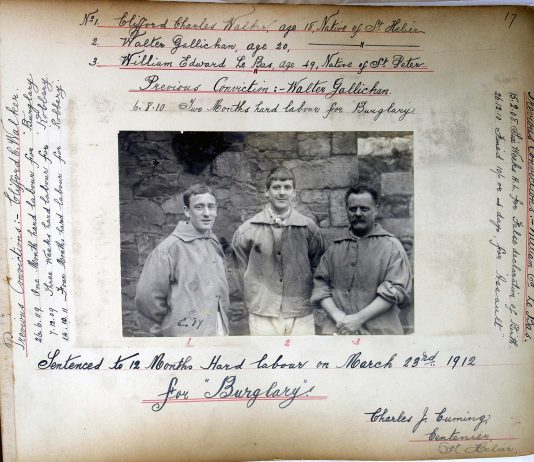 17
No 1, Clifford Charles Walker, age 18, Native of St Helier
2. Walter Gallichan, age 20, — " —
3. William Edward Le Bas, age 49, Native of St Peter.
Previous Conviction :- Walter Gallichan.
6.8.10. Two Months hard labour for Burglary.
Previous Convictions :- Clifford C. Walker
26.6.09. One Month hard labour for Burglary
7.12.09. Three Weeks hard labour for Robbery
Four Months hard labour for Robbery.
Previous Convictions :- William E. Le Bas.
15.2.08. Six Weeks H.L. for False declaration of Birth
26.12.10 Fined or days for "Assault"
1 2 3
Sentenced to 12 Months Hard labour on March 23rd 1912
for "Burglary".
Charles J. Cuming,
Centenier,
St. Helier